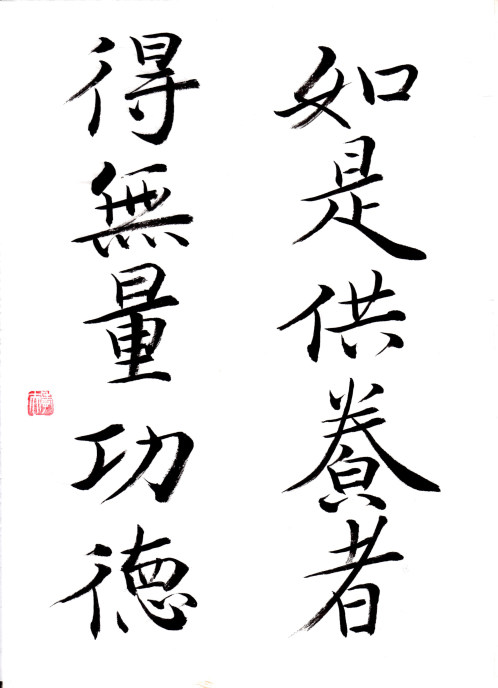 如是供養者
得無量功德